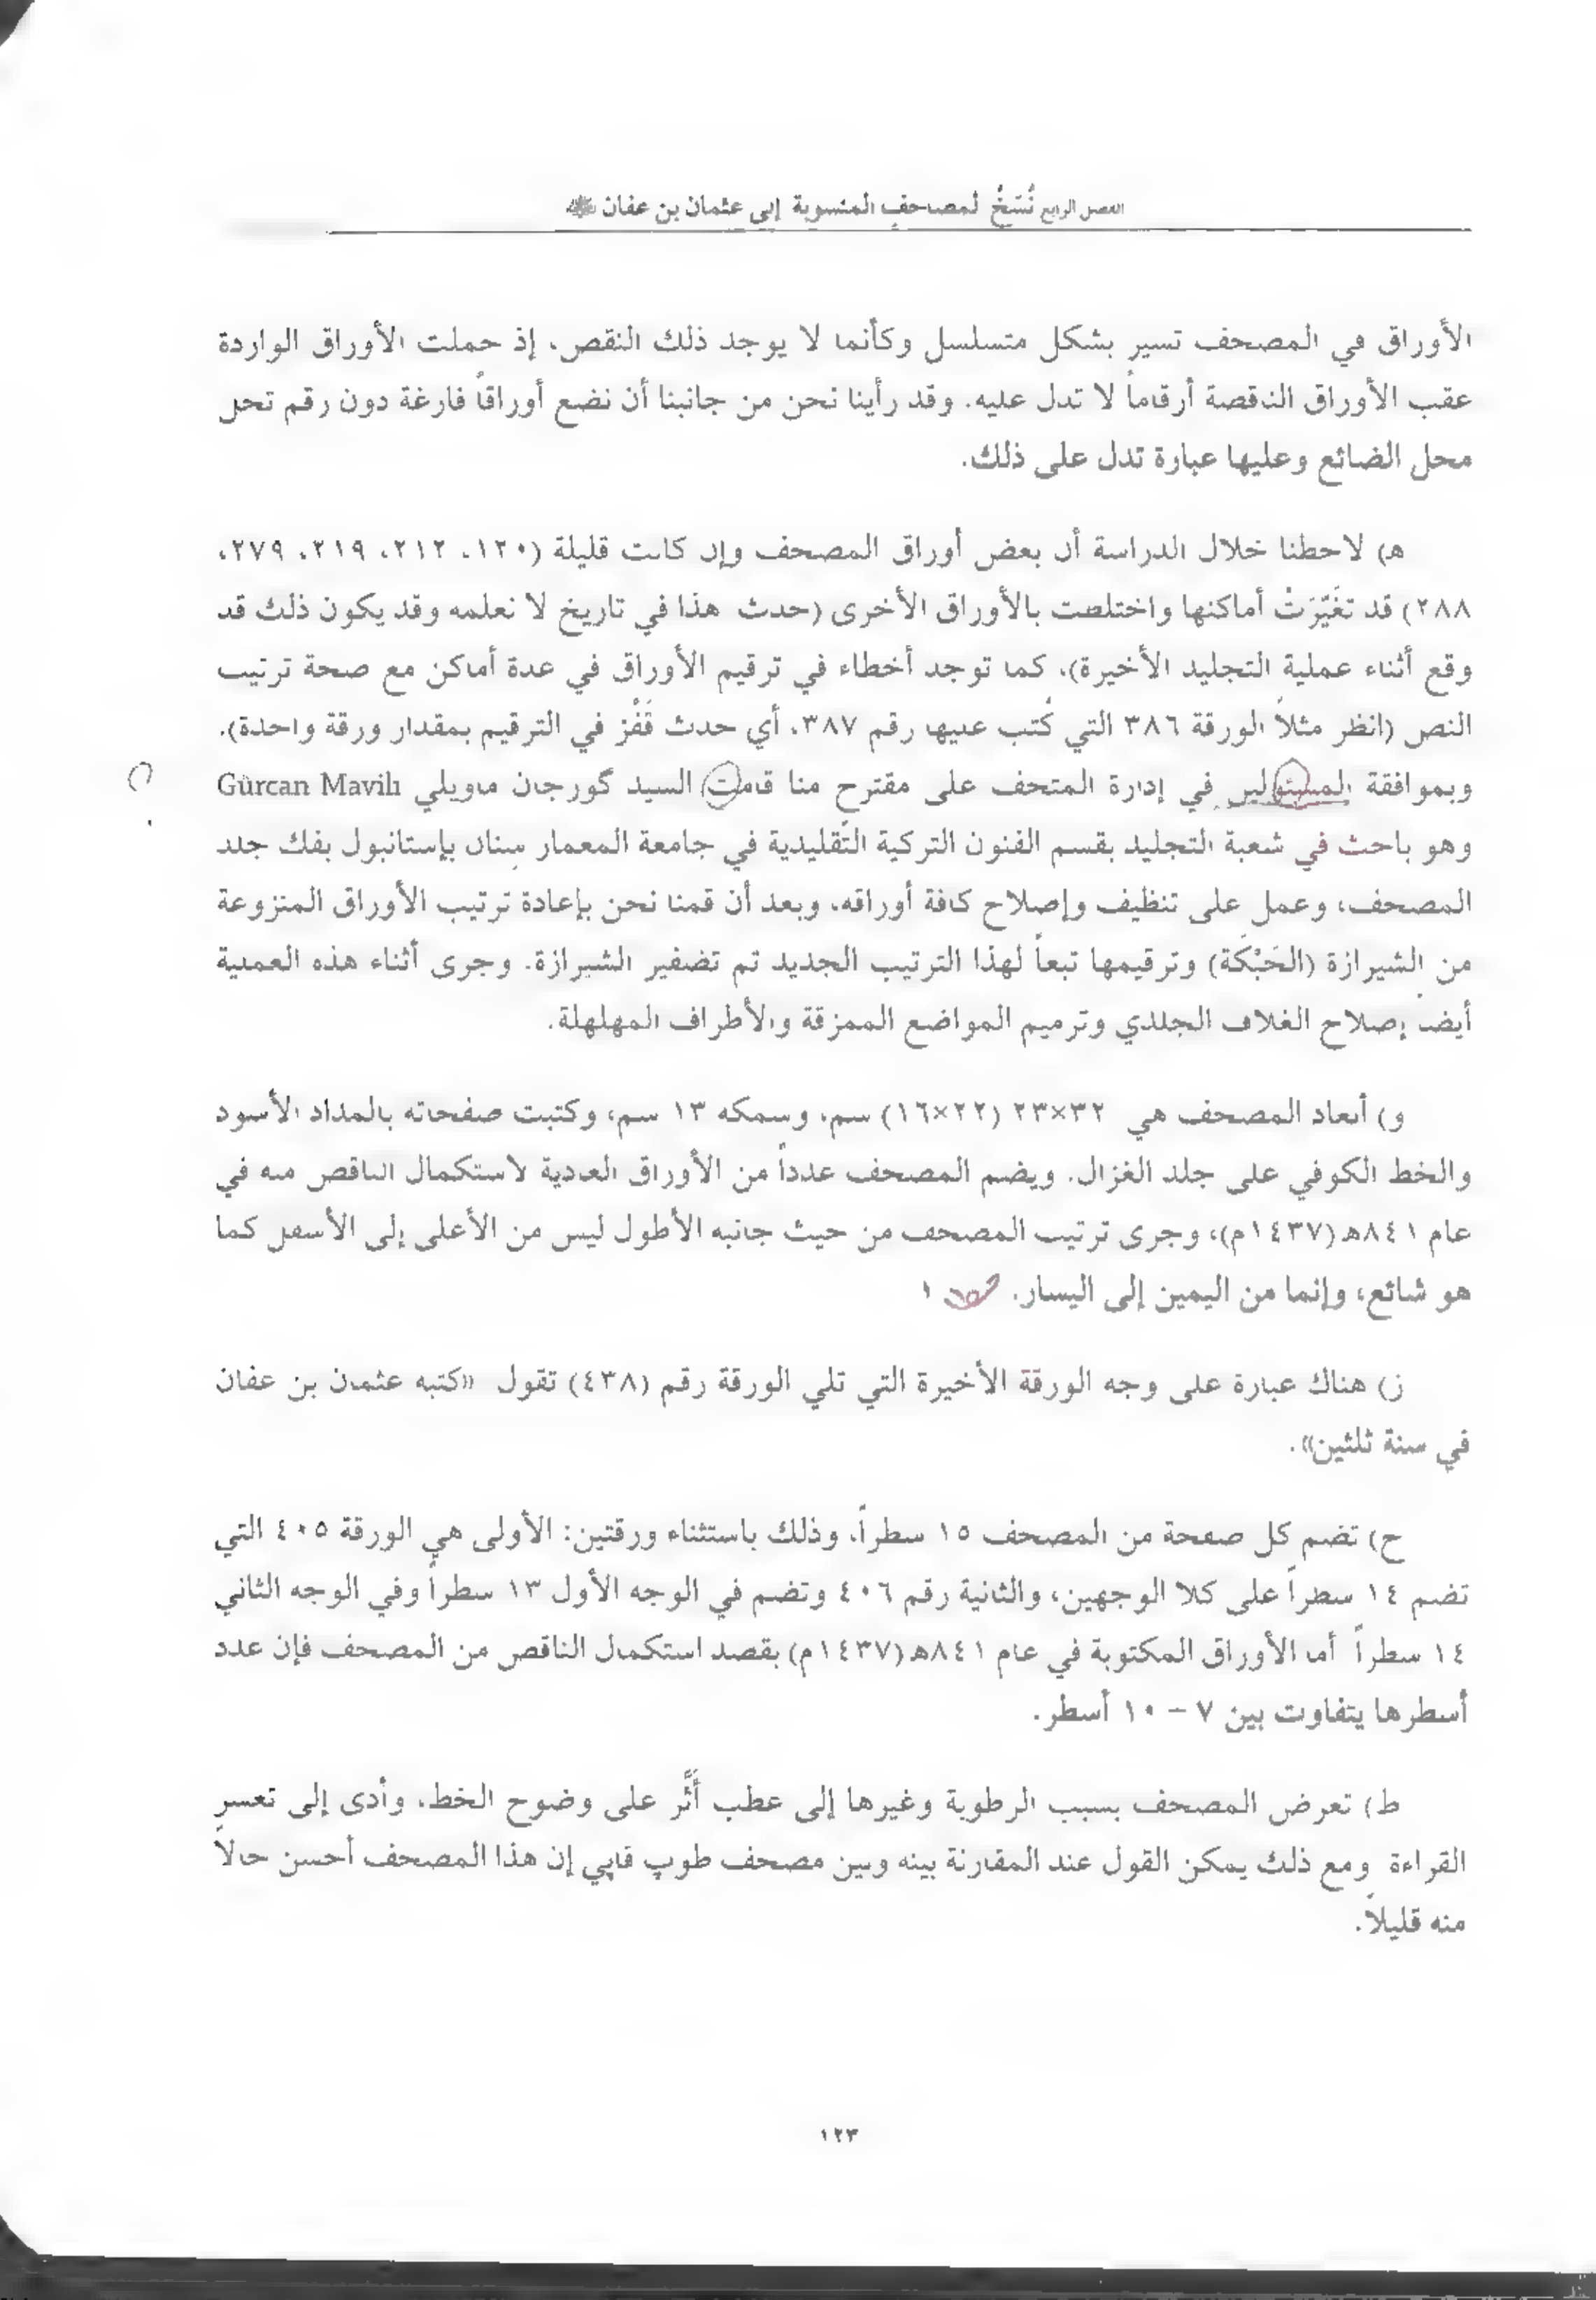 الفصل الرابع نُسَخُ المصاحف المنسوبة إلى عثمان بن عفان ﷺ
الأوراق في المصحف تسير بشكل متسلسل وكأنما لا يوجد ذلك النقص، إذ حملت الأوراق الواردة
عقب الأوراق الناقصة أرقاماً لا تدل عليه. وقد رأينا نحن من جانبنا أن نضع أوراقاً فارغة دون رقم تحل
محل الضائع وعليها عبارة تدل على ذلك.
هـ) لاحظنا خلال الدراسة أن بعض أوراق المصحف وإن كانت قليلة (١٢٠، ٢١٢، ٢١٩، ٢٧٩،
٢٨٨) قد تغَيَّرَتْ أماكنها واختلطت بالأوراق الأخرى (حدث هذا في تاريخ لا نعلمه وقد يكون ذلك قد
وقع أثناء عملية التجليد الأخيرة)، كما توجد أخطاء في ترقيم الأوراق في عدة أماكن مع صحة ترتيب
النص (انظر مثلاً الورقة ٣٨٦ التي كُتب عليها رقم ٣٨٧، أي حدث قَفْز في الترقيم بمقدار ورقة واحدة).
وبموافقة المسئولين في إدارة المتحف على مقترح منا قامت السيد گورجان ماويلي Gürcan Mavilı
وهو باحث في شعبة التجليد بقسم الفنون التركية التقليدية في جامعة المعمار سِنان بإستانبول بفك جلد
المصحف، وعمل على تنظيف وإصلاح كافة أوراقه، وبعد أن قمنا نحن بإعادة ترتيب الأوراق المنزوعة
من الشيرازة (الحَبْكَة) وترقيمها تبعاً لهذا الترتيب الجديد تم تضفير الشيرازة. وجرى أثناء هذه العملية
أيضاً إصلاح الغلاف الجلدي وترميم المواضع الممزقة والأطراف المهلهلة.
و) أبعاد المصحف هي ٣٢×٢٣ (٢٢×١٦) سم، وسمكه ١٣ سم، وكتبت صفحاته بالمداد الأسود
والخط الكوفي على جلد الغزال. ويضم المصحف عدداً من الأوراق العادية لاستكمال الناقص منه في
عام ٨٤١هـ (١٤٣٧م)، وجرى ترتيب المصحف من حيث جانبه الأطول ليس من الأعلى إلى الأسفل كما
هو شائع، وإنما من اليمين إلى اليسار.
ز) هناك عبارة على وجه الورقة الأخيرة التي تلي الورقة رقم (٤٣٨) تقول «كتبه عثمان بن عفان
في سنة ثلثين».
ح) تضم كل صفحة من المصحف ١٥ سطراً، وذلك باستثناء ورقتين: الأولى هي الورقة ٤٠٥ التي
تضم ١٤ سطراً على كلا الوجهين، والثانية رقم ٤٠٦ وتضم في الوجه الأول ١٣ سطراً وفي الوجه الثاني
١٤ سطراً أما الأوراق المكتوبة في عام ٨٤١هـ (١٤٣٧م) بقصد استكمال الناقص من المصحف فإن عدد
أسطرها يتفاوت بين ٧ – ١٠ أسطر.
ط) تعرض المصحف بسبب الرطوبة وغيرها إلى عطب أَثَّر على وضوح الخط، وأدى إلى تعسر
القراءة ومع ذلك يمكن القول عند المقارنة بينه وبين مصحف طوپ قاپي إن هذا المصحف أحسن حالاً
منه قليلاً.
١٢٣